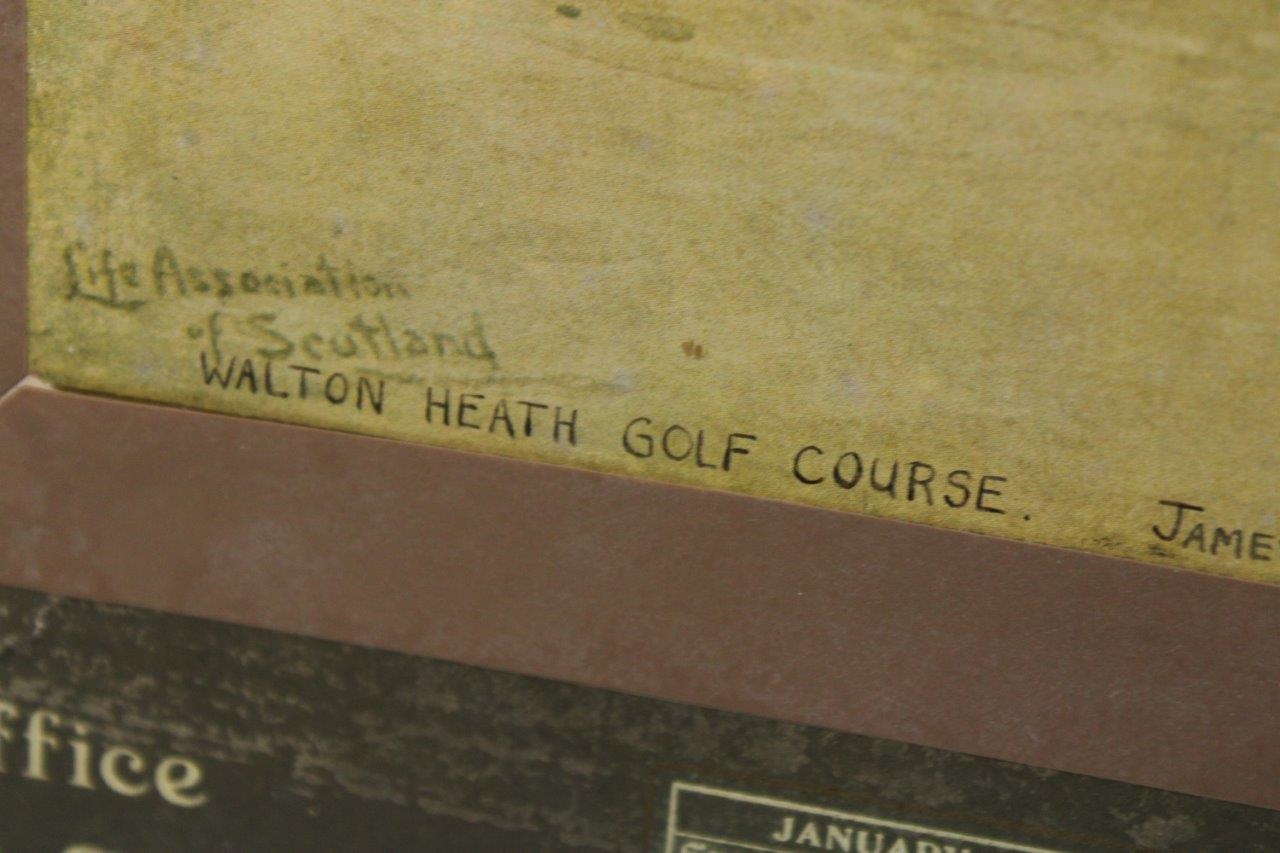 Life Association
of Scotland
WALTON HEATH GOLF COURSE. JAME
ffice
JANUARY